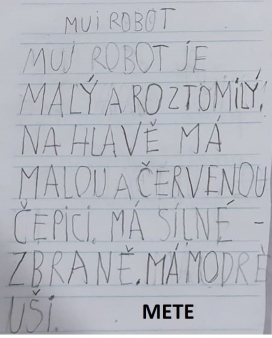 MUJ ROBOT
MUJ ROBOT JE
MALÝ A ROZTOMÍLÝ.
NA HLAVĚ MÁ
MALOU A ČERVENOU
ČEPICI. MÁ SÍLNÉ -
ZBRANĚ. MÁ MODRÈ
UŠI. METE